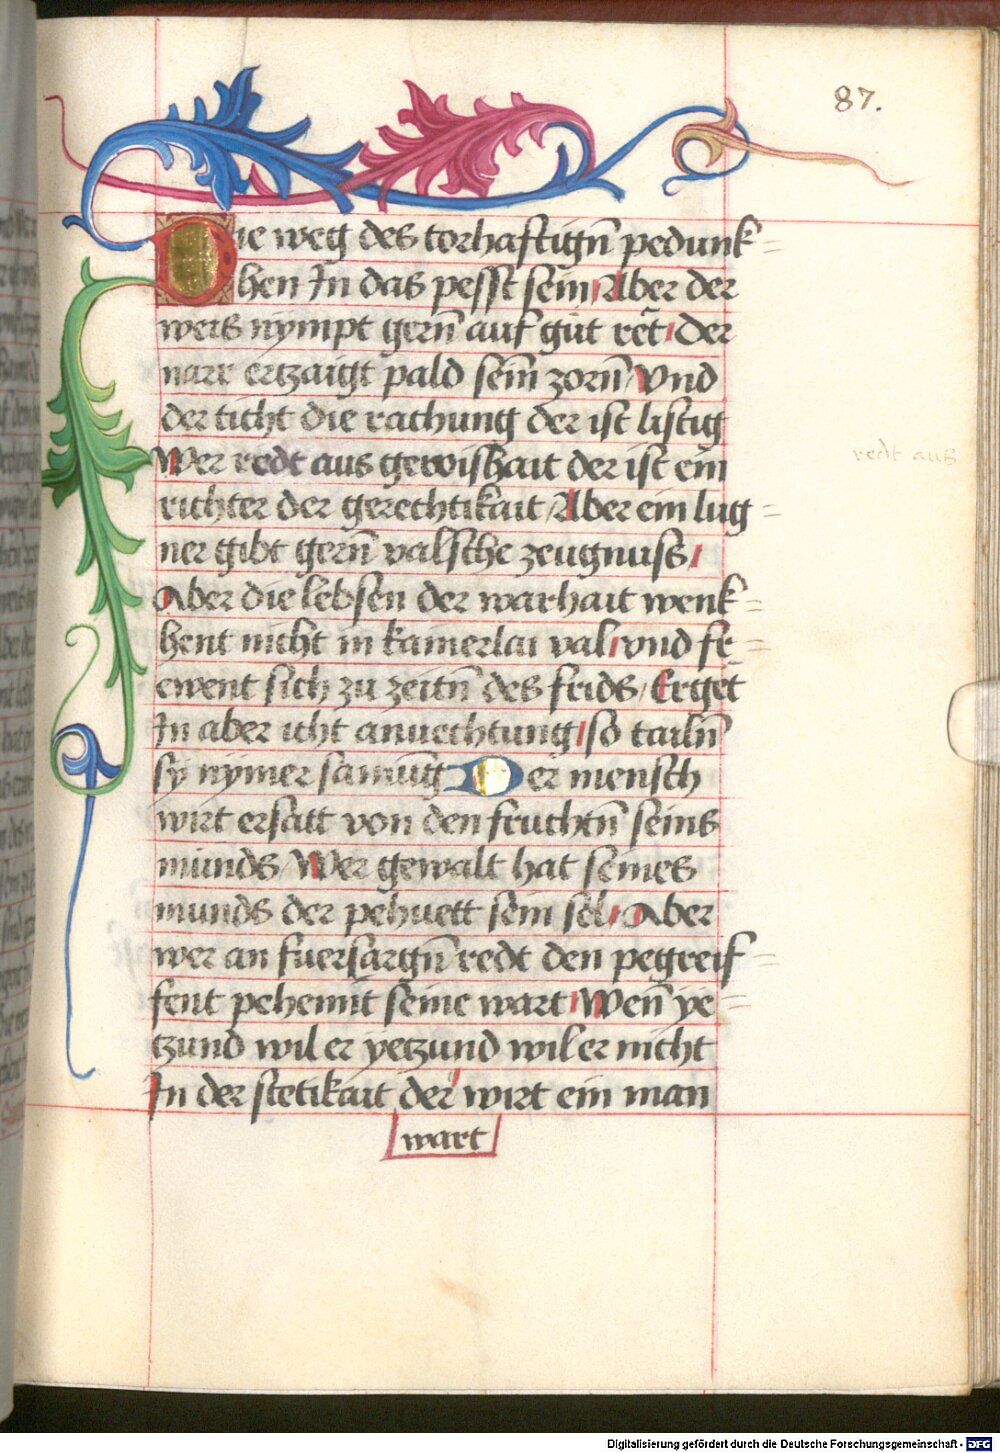 87.
Die weg des torhafftign̄ pedunk=
hen In das pesst sein Aber der
weis nympt gern̄ auf gůt ret̄ der
narr ertzaigt pald sein̄ zorn̄ Vnd
der ticht die rachung der ist listig
Wer redt aus gewishait der ist ein
redt aus
richter der gerechtikait Aber ein lug=
ner gibt gern̄ valsche zeugnuss
Aber die lebsen der warhait wenk=
hent nicht in kainerlai val vnd fr=
ewent sich zu zeitn̄ des frids Erget̄
In aber icht anuechtung so tailn̄
sy nymer samūg Der mensch
wirt ersatt von den fruchtn̄ seins
munds Wer gewalt hat seines
munds der pehuett sein sel Aber
wer an fuersargn̄ redt den pegreif=
fent pehennt seine wart Wen̄ ye=
tzund wil er yetzund wil er nicht
In der stetikait der wirt ein man
wart
Digitalisierung gefördert durch die Deutsche Forschungsgemeinschaft - DFG